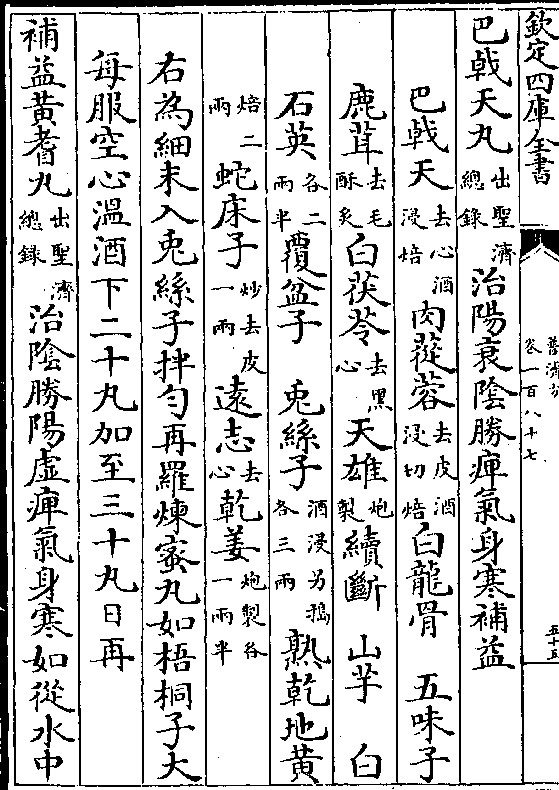 欽定四庫全書
普濟方
卷一百八十七
五十五
巴戟天丸出聖濟總錄治陽衰陰勝痺氣身寒補益
巴戟天去心酒浸焙肉蓯蓉去皮酒浸切焙白龍骨 五味子
鹿茸去毛酥炙白茯苓去黑心天雄炮製續斷 山芋 白
石英各二兩半覆盆子 兎絲子酒浸另搗各三兩熟乾地黄
焙二兩蛇床子炒去皮一兩遠志去心乾姜炮製各一兩半
右為細末入兎絲子拌勻再羅煉蜜丸如梧桐子大
每服空心溫酒下二十丸加至三十丸日再
補益黄耆丸出聖濟總錄治陰勝陽虛痺氣身寒如從水中